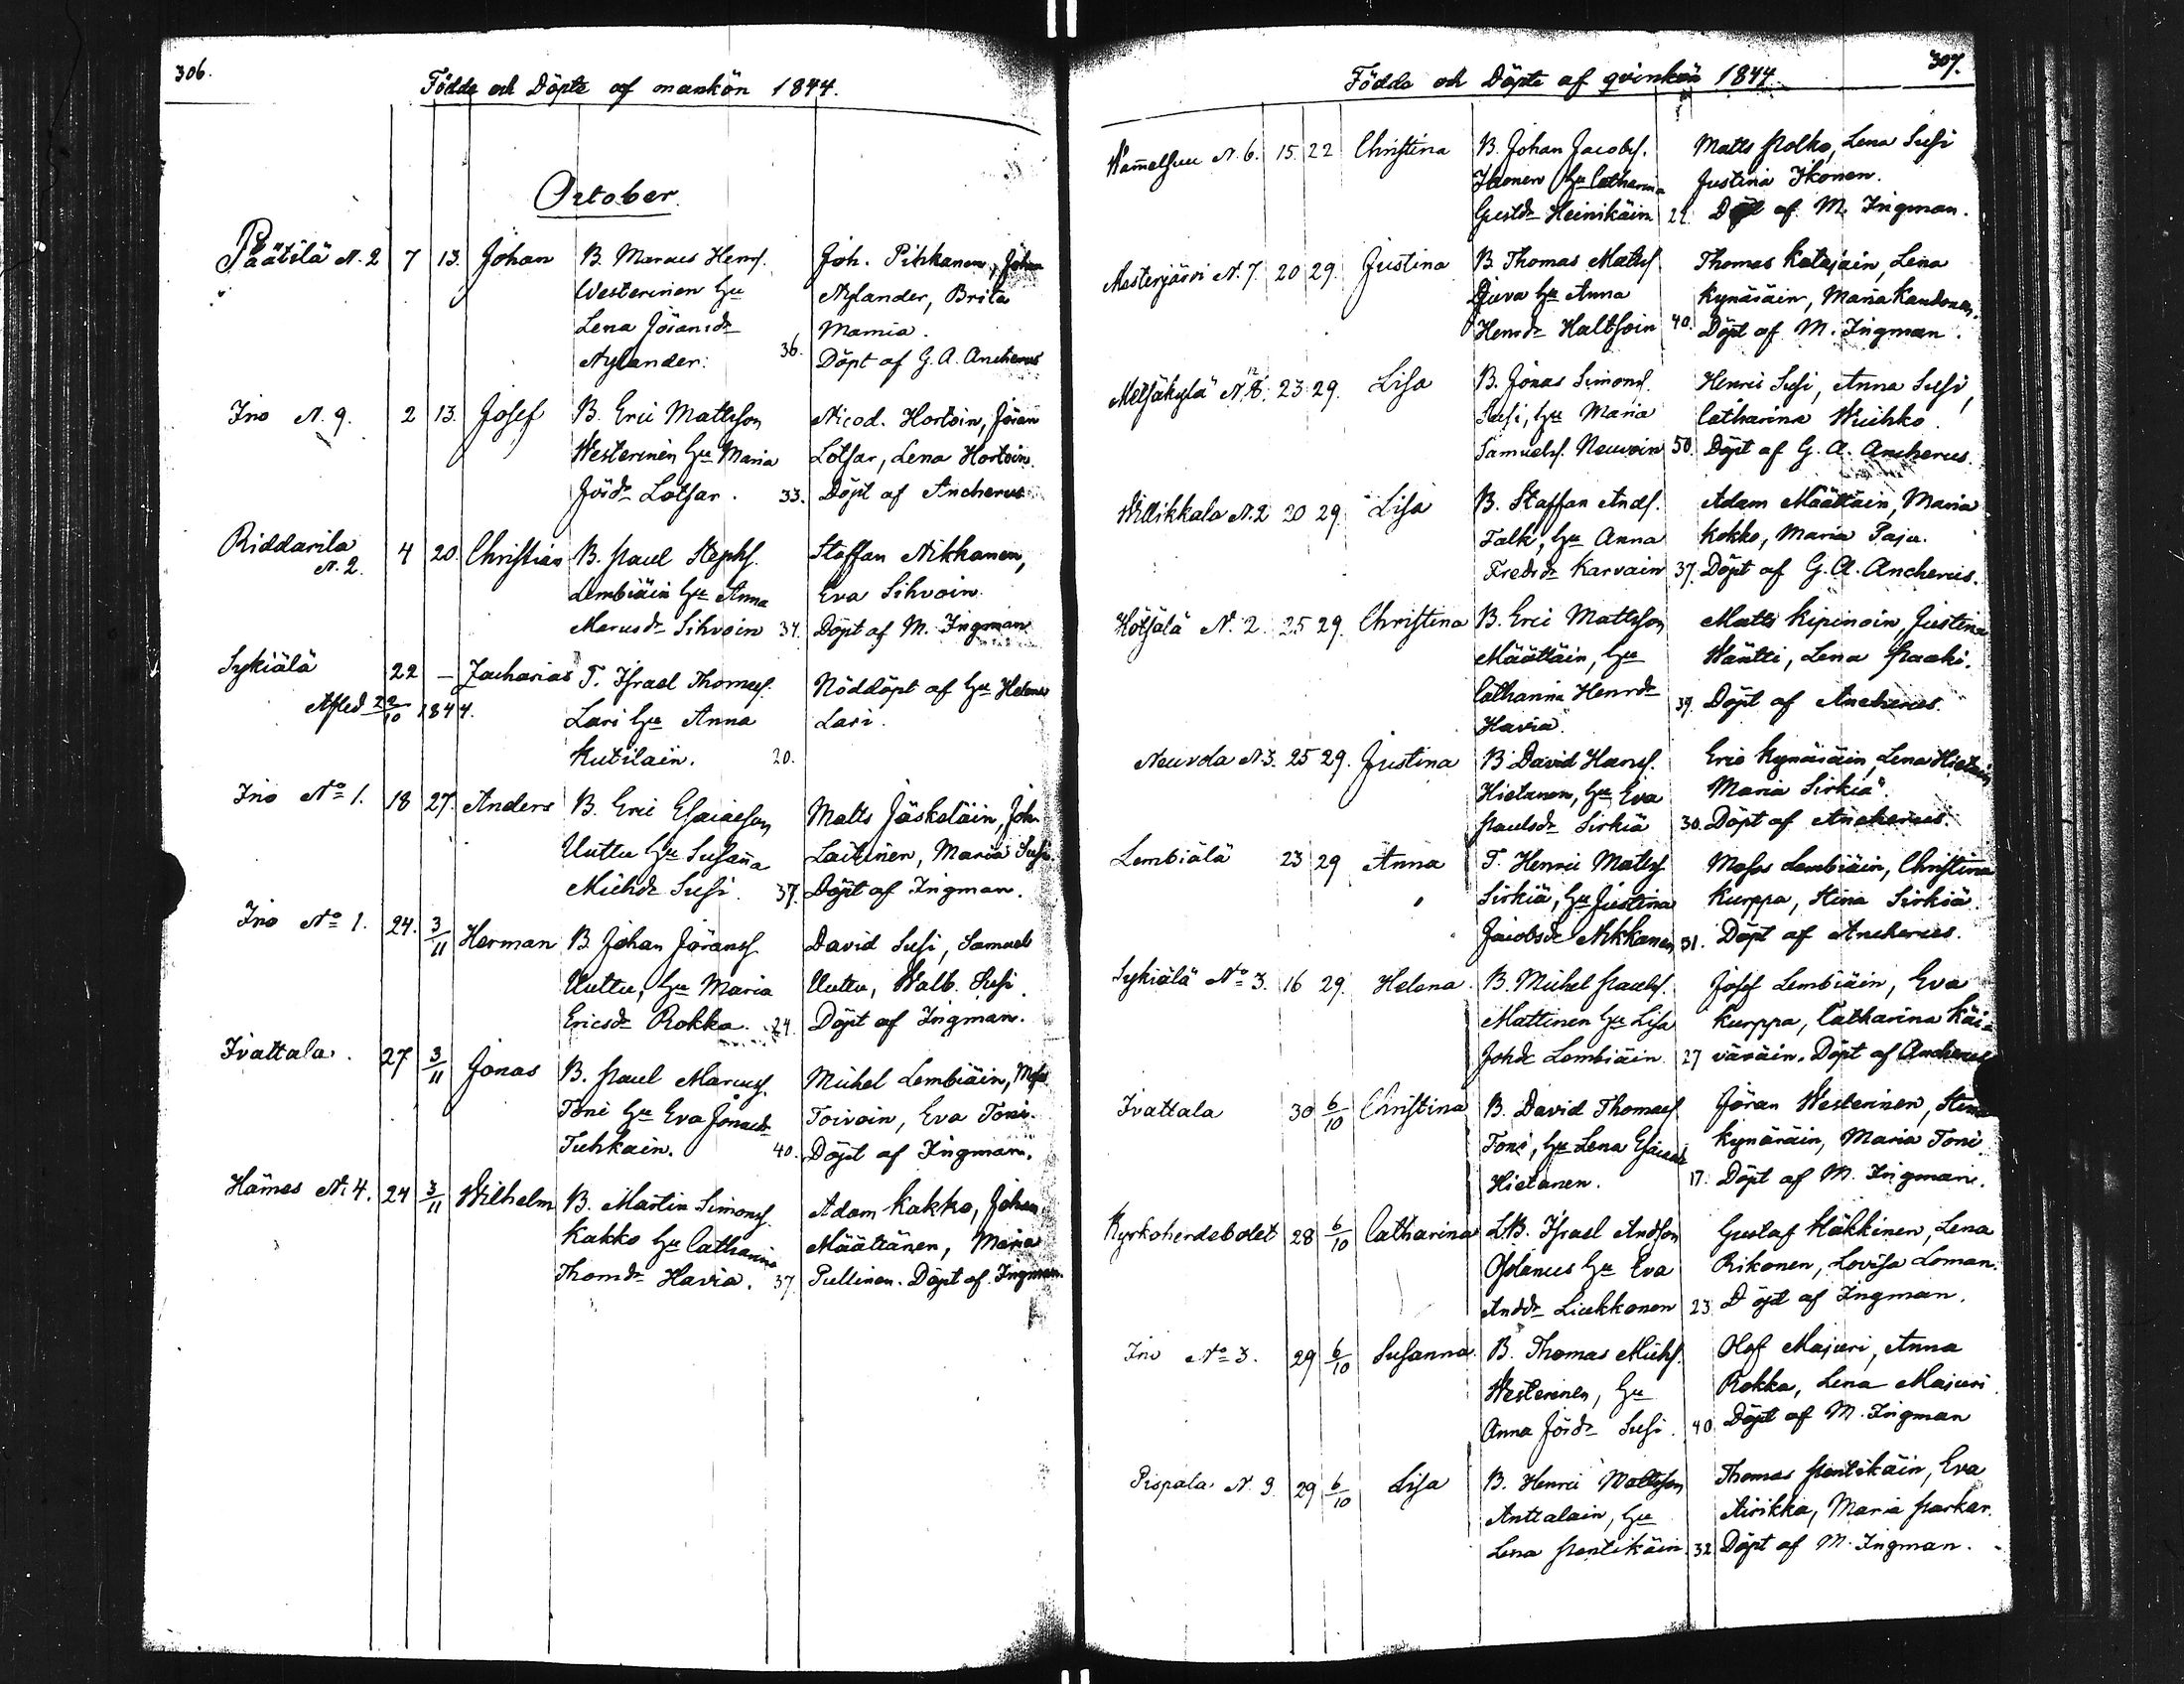 306.
Födde och Döpte af mankön 1844.
October.
Päätilä N. 2 7 13. Johan B. Marcus Henrs. Joh. Pihkanen, Johan
Westerinen Hu Nylander, Brita
Lena Jöransdr Mamia.
Nylander. 36. Döpt af G. A. Ancherus
Ino N. 9. 2 13. Josef B. Eric Mattsson Nicod. Hortoin, Jöran
Westerinen Hu Maria Lotsar, Lena Hortoin.
Jördr Lotsar. 33. Döpt af Ancherus
Riddarila 4 20. Christian B. Paul Stephs. Staffan Nikkanen,
N. 2. Lembiäin Hu Anna Eva Sihvoin.
Marcusdr Sihvoin 34. Döpt af M. Ingman
Sykiälä 22 — Zacharias T. Israel Thomess. Nöddöpt af Hu Helena
Afled 22/10 1844. Lari Hu Anna Lari.
Kutilain. 20.
Ino No 1. 18 27. Anders B. Eric Esaiasson Matts Jäskeläin, Joh.
Uuttu Hu Susanna Laitinen, Maria Susi.
Michdr Susi. 37. Döpt af Ingman.
Ino No 1. 24. 3/11 Herman B. Johan Jöranss. David Susi, Samuel
Uuttu, Hu Maria Uuttu, Walb. Susi.
Ericsdr Rokka. 24. Döpt af Ingman.
Ivattala. 27 3/11 Jonas B. Paul Marcuss. Michel Lembiäin, Moses
Toni Hu Eva Jonasdr Toivoin, Eva Toni.
Tuhkain. 40. Döpt af Ingman.
Hämes N. 4. 24 3/11 Wilhelm B. Martin Simonss. Adam Kakko, Johan
Kakko Hu Catharina Määttänen, Maria
Thomdr Havia. 37. Pullinen. Döpt af Ingman.
307.
Födde och Döpte af qvinkön 1844.
Wammelsuu N. 6. 15. 22 Christina B. Johan Jacobs. Matts Polko, Lena Susi
Ikonen Hu Catharina Justina Ikonen.
Gustdr Heinikäin Döpt af M. Ingman.
Mesterjärvi N. 7. 20 29. Justina B. Thomas Matss. Thomas Katajain, Lena
Juva Hu Anna Kynäräin, Maria Kaudonen.
Henrdr Haltsoin 40. Döpt af M. Ingman.
Metsäkylä N. 8. 12 23 29. Lisa B. Jonas Simons. Henric Susi, Anna Susi,
Susi, Hu Maria Catharina Wuihko.
Samuels. Neuvoin 50. Döpt af G. A. Ancherus.
Willikkala N. 2 20 29. Lisa B. Staffan Ands. Adam Määttäin, Maria
Falk, Hu Anna Kokko, Maria Paju.
Fredrdr Karvain 37. Döpt af G. A. Ancherus.
Hötsölä N. 2. 25 29. Christina B. Eric Mattsson Matts Kipinoin, Justina
Määttäin, Hu Wäntti, Lena Paaki.
Catharina Henrdr 39. Döpt af Ancherus.
Havia.
Neuvola N. 3. 25 29. Justina B. David Hanss. Eric Kynäräin, Lena Hietain
Hietanen, Hu Eva Maria Sirkiä.
Paulsdr Sirkiä 30. Döpt af Ancherus.
Lembiälä 23 29 Anna T. Henric Matss. Moses Lembiäin, Christina
Sirkiä, Hu Justina Kurppa, Stina Sirkiä.
Jacobsdr Nikkanen 31. Döpt af Ancherus.
Sykiälä No 3. 16 29. Helena. B. Michel Pauls. Josef Lembiäin, Eva
Mattinen Hu Lisa Kurppa, Catharina Käi-
Johdr Lembiäin. 27 väräin. Döpt af Ancherus
Ivattala 30 6/10 Christina B. David Thomass. Jöran Westerinen, Stina
Toni, Hu Lena Esaiasdr Kynäräin, Maria Toni.
Hietanen. 17. Döpt af M. Ingman.
Kyrkoherdebolet 28 6/10 Catharina LB. Israel Andsson Gustaf Häkkinen, Lena
Hu Eva Rikonen, Lovisa Loman.
Anddr Liukkonen 23. Döpt af Ingman.
Ino No 3. 29 6/10 Susanna. B. Thomas Michs. Olof Majuri, Anna
Westerinen, Hu Rokka, Lena Majuri
Anna Jördr Susi. 40. Döpt af M. Ingman
Pispala N. 9. 29 6/10 Lisa B. Henric Mattsson Thomas Pentikäin, Eva
Anttalain, Hu Airikka, Maria Parkar.
Lena Pentikäin. 32 Döpt af M. Ingman.